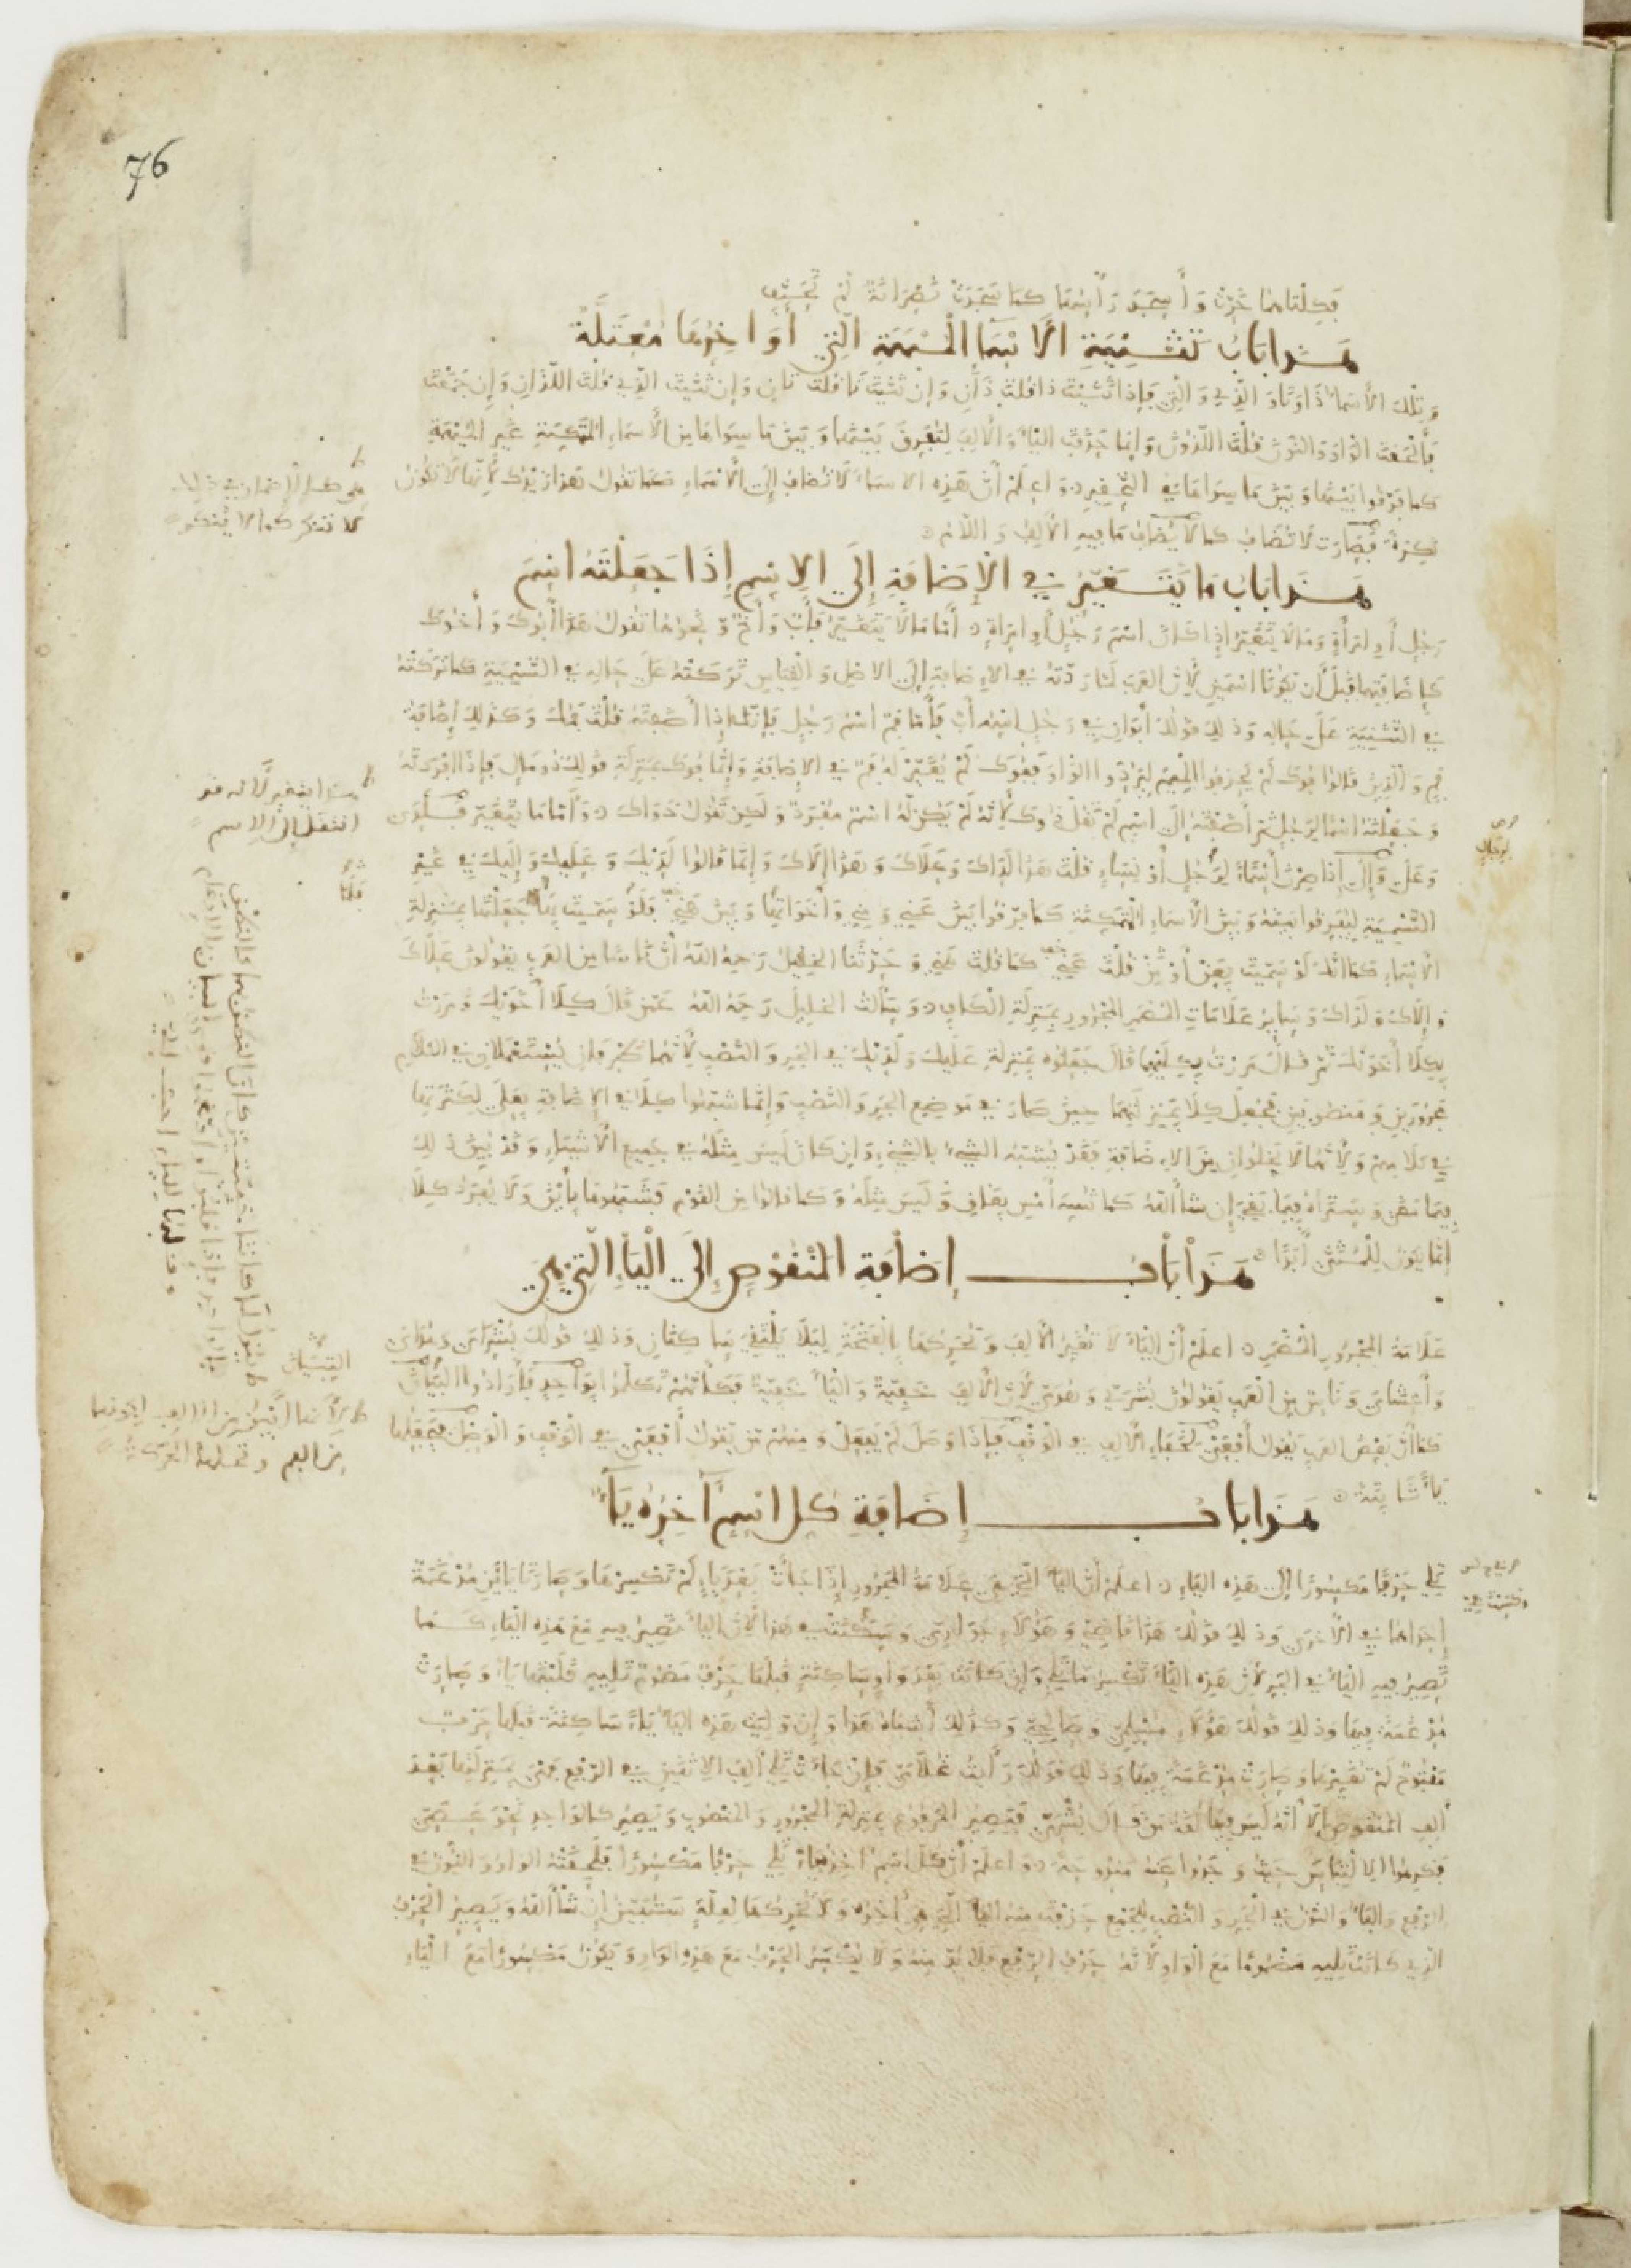 76
فكلتاهما خرت وأسجد رأسها كما سجدت نصرانة لم تحنف
هذا باب تثنية الأسماء المبهمة التي أواخرها معتلة
وتلك الأسماء ذا وتا والذي والتي فإذا ثنيت ذا قلت ذان وإن ثنيت تا قلت تان وإن ثنيت الذي قلت اللذان وإن جمعت
فألحقت الواو والنون قلت اللذون وإنما حذفت الياء والألف لتفرق بينها وبين ما سواها من الأسماء المتمكنة غير المبهمة
كما فرقوا بينها وبين ما سواها في التحقير واعلم أن هذه الأسماء لا تضاف إلى الأسماء كما تقول هذا زيدك لأنها لا تكون
نكرة فصارت لا تضاف كما لا يضاف ما فيه الألف واللام
هذا باب ما يتغير في الإضافة إلى الاسم إذا جعلته اسم
رجل أو امرأة وما لا يتغير إذا كان اسم رجل أو امرأة أما ما لا يتغير فأب وأخ ونحوهما تقول هذا أبوك وأخوك
كإضافتهما قبل أن يكونا اسمين لأن العرب لما ردته في الإضافة إلى الأصل والقياس تركته على حاله في التسمية كما تركته
في التثنية على حاله وذلك قولك أبوان في رجل اسمه أب فأما فم اسم رجل فإنك إذا أضفته قلت فمك وكذلك إضافة
فم والذين قالوا فوك لم يحذفوا الميم ليردوا الواو ففوك لم يغير له فم في الإضافة وإنما فوك بمنزلة قولك ذو مال فإذا أفردته
وجعلته اسما لرجل ثم أضفته إلى اسم لم تقل ذوك لأنه لم يكن له اسم مفرد ولكن تقول ذواك وأما ما يتغير فلدى
وعلى وإلى إذا صرن أسماء لرجال أو نساء قلت هذا لداك وعلاك وهذا إلاك وإنما قالوا لديك وعليك وإليك في غير
التسمية ليفرقوا بينها وبين الأسماء المتمكنة كما فرقوا بين عني ومني وأخواتها وبين هني فلو سميت بها جعلتها بمنزلة
الأسماء كما أنك لو سميت بعن أو من قلت عني كما قلت هني وحدثنا الخليل رحمه الله أن ناسا من العرب يقولون علاك
وإلاك ولداك وسائر علامات المضمر المجرور بمنزلة الكاف وسألت الخليل رحمه الله عمن قال كلا أخويك ومررت
بكلا أخويك ثم قال مررت بكليهما قال جعلوه بمنزلة عليك ولديك في الجر والنصب لأنهما ظرفان يستعملان في الكلام
مجرورين ومنصوبين فجعل كلا بمنزلتهما حين صار في موضع الجر والنصب وإنما شبهوا كلا في الإضافة بعلى لكثرتهما
في كلامهم ولأنهما لا يخلوان من الإضافة فقد يشبه الشيء بالشيء وإن كان ليس مثله في جميع الأشياء وقد بين ذلك
فيما مضى وستراه فيما بقي إن شاء الله كما شبه أمس بغاق وليس مثله وكما قالوا من القوم فشبهوها بأين ولا يفرد كلا
إنما يكون للمثنى أبدا هذا باب إضافة المنقوص إلى الياء التي هي
علامة المجرور المضمر اعلم أن الياء لا تغير الألف وتحركها بالفتحة لئلا يلتقي ساكنان وذلك قولك بشراي وهداي
وأعشاي وناس من العرب يقولون بشري وهدي لأن الألف خفية والياء خفية فكأنهم تكلموا بواحد فأرادوا التبيان
كما أن بعض العرب يقول أفعي لخفاء الألف في الوقف فإذا وصل لم يفعل ومنهم من يقول أفعي في الوقف والوصل فيجعلها
ياء ثابتة هذا باب إضافة كل اسم آخره ياء
تلي حرفا مكسورا إلى هذه الياء اعلم أن الياء التي هي علامة المجرور إذا جاءت بعد ياء لم تكسرها وصارتا ياءين مدغمة
إحداهما في الأخرى وذلك قولك هذا قاضي وهؤلاء جواري وسكنت في هذا لأن الياء تصير فيه مع هذه الياء كما
تصير فيه الياء في الجر لأن هذه الياء تكسر ما تلي وإن كانت بعد واو ساكنة قبلها حرف مضموم تليه قلبتها ياء وصارت
مدغمة فيها وذلك قولك هؤلاء مسلمي وصالحي وكذلك أشباه هذا وإن وليت هذه الياء ياء ساكنة قبلها حرف
مفتوح لم تغيرها وصارت مدغمة فيها وذلك قولك رأيت غلامي فإن جاءت تلي ألف الاثنين في الرفع فهي بمنزلتها بعد
ألف المنقوص إلا أنه ليس فيها لغة من قال بشري فيصير المرفوع بمنزلة المجرور والمنصوب ويصير كالواحد نحو عصي
فكرهوا الالتباس حيث وجدوا عنه مندوحة واعلم أن كل اسم آخره ياء تلي حرفا مكسورا فلحقته الواو والنون في
الرفع والياء والنون في الجر والنصب للجمع حذفت منه الياء التي هي آخره ولا تحركها لعلة ستبين إن شاء الله ويصير الحرف
الذي كانت تليه مضموما مع الواو لأنه حرف الرفع فلا بد منه ولا يكسر الحرف مع هذه الواو ويكون مكسورا مع الياء
لا تتنكر كما لا يتنكر
انتقل إلى الاسم
التبيان